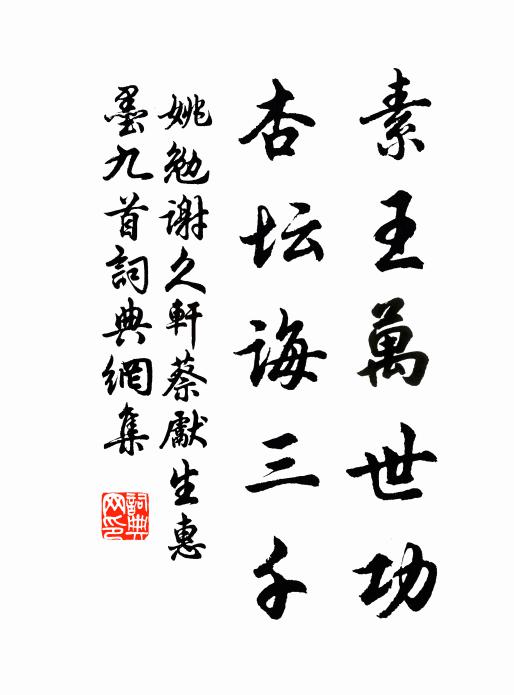 素王萬世功
杏坛誨三千
姚勉謝久軒蔡獻生惠
墨九首詞典網集
詞典网印